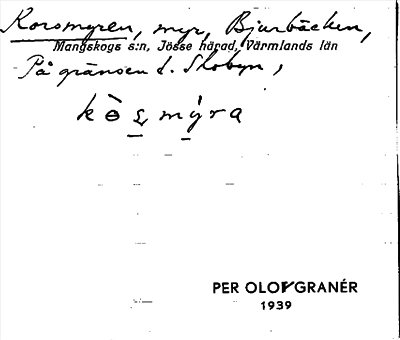 Korsmyren, myr, Bjurbäcken,
Mangskogs s:n, Jösse härad, Värmlands län
På gränsen t. Skobyn,
kòs̱mýra
PER OLOF GRANÉR
1939